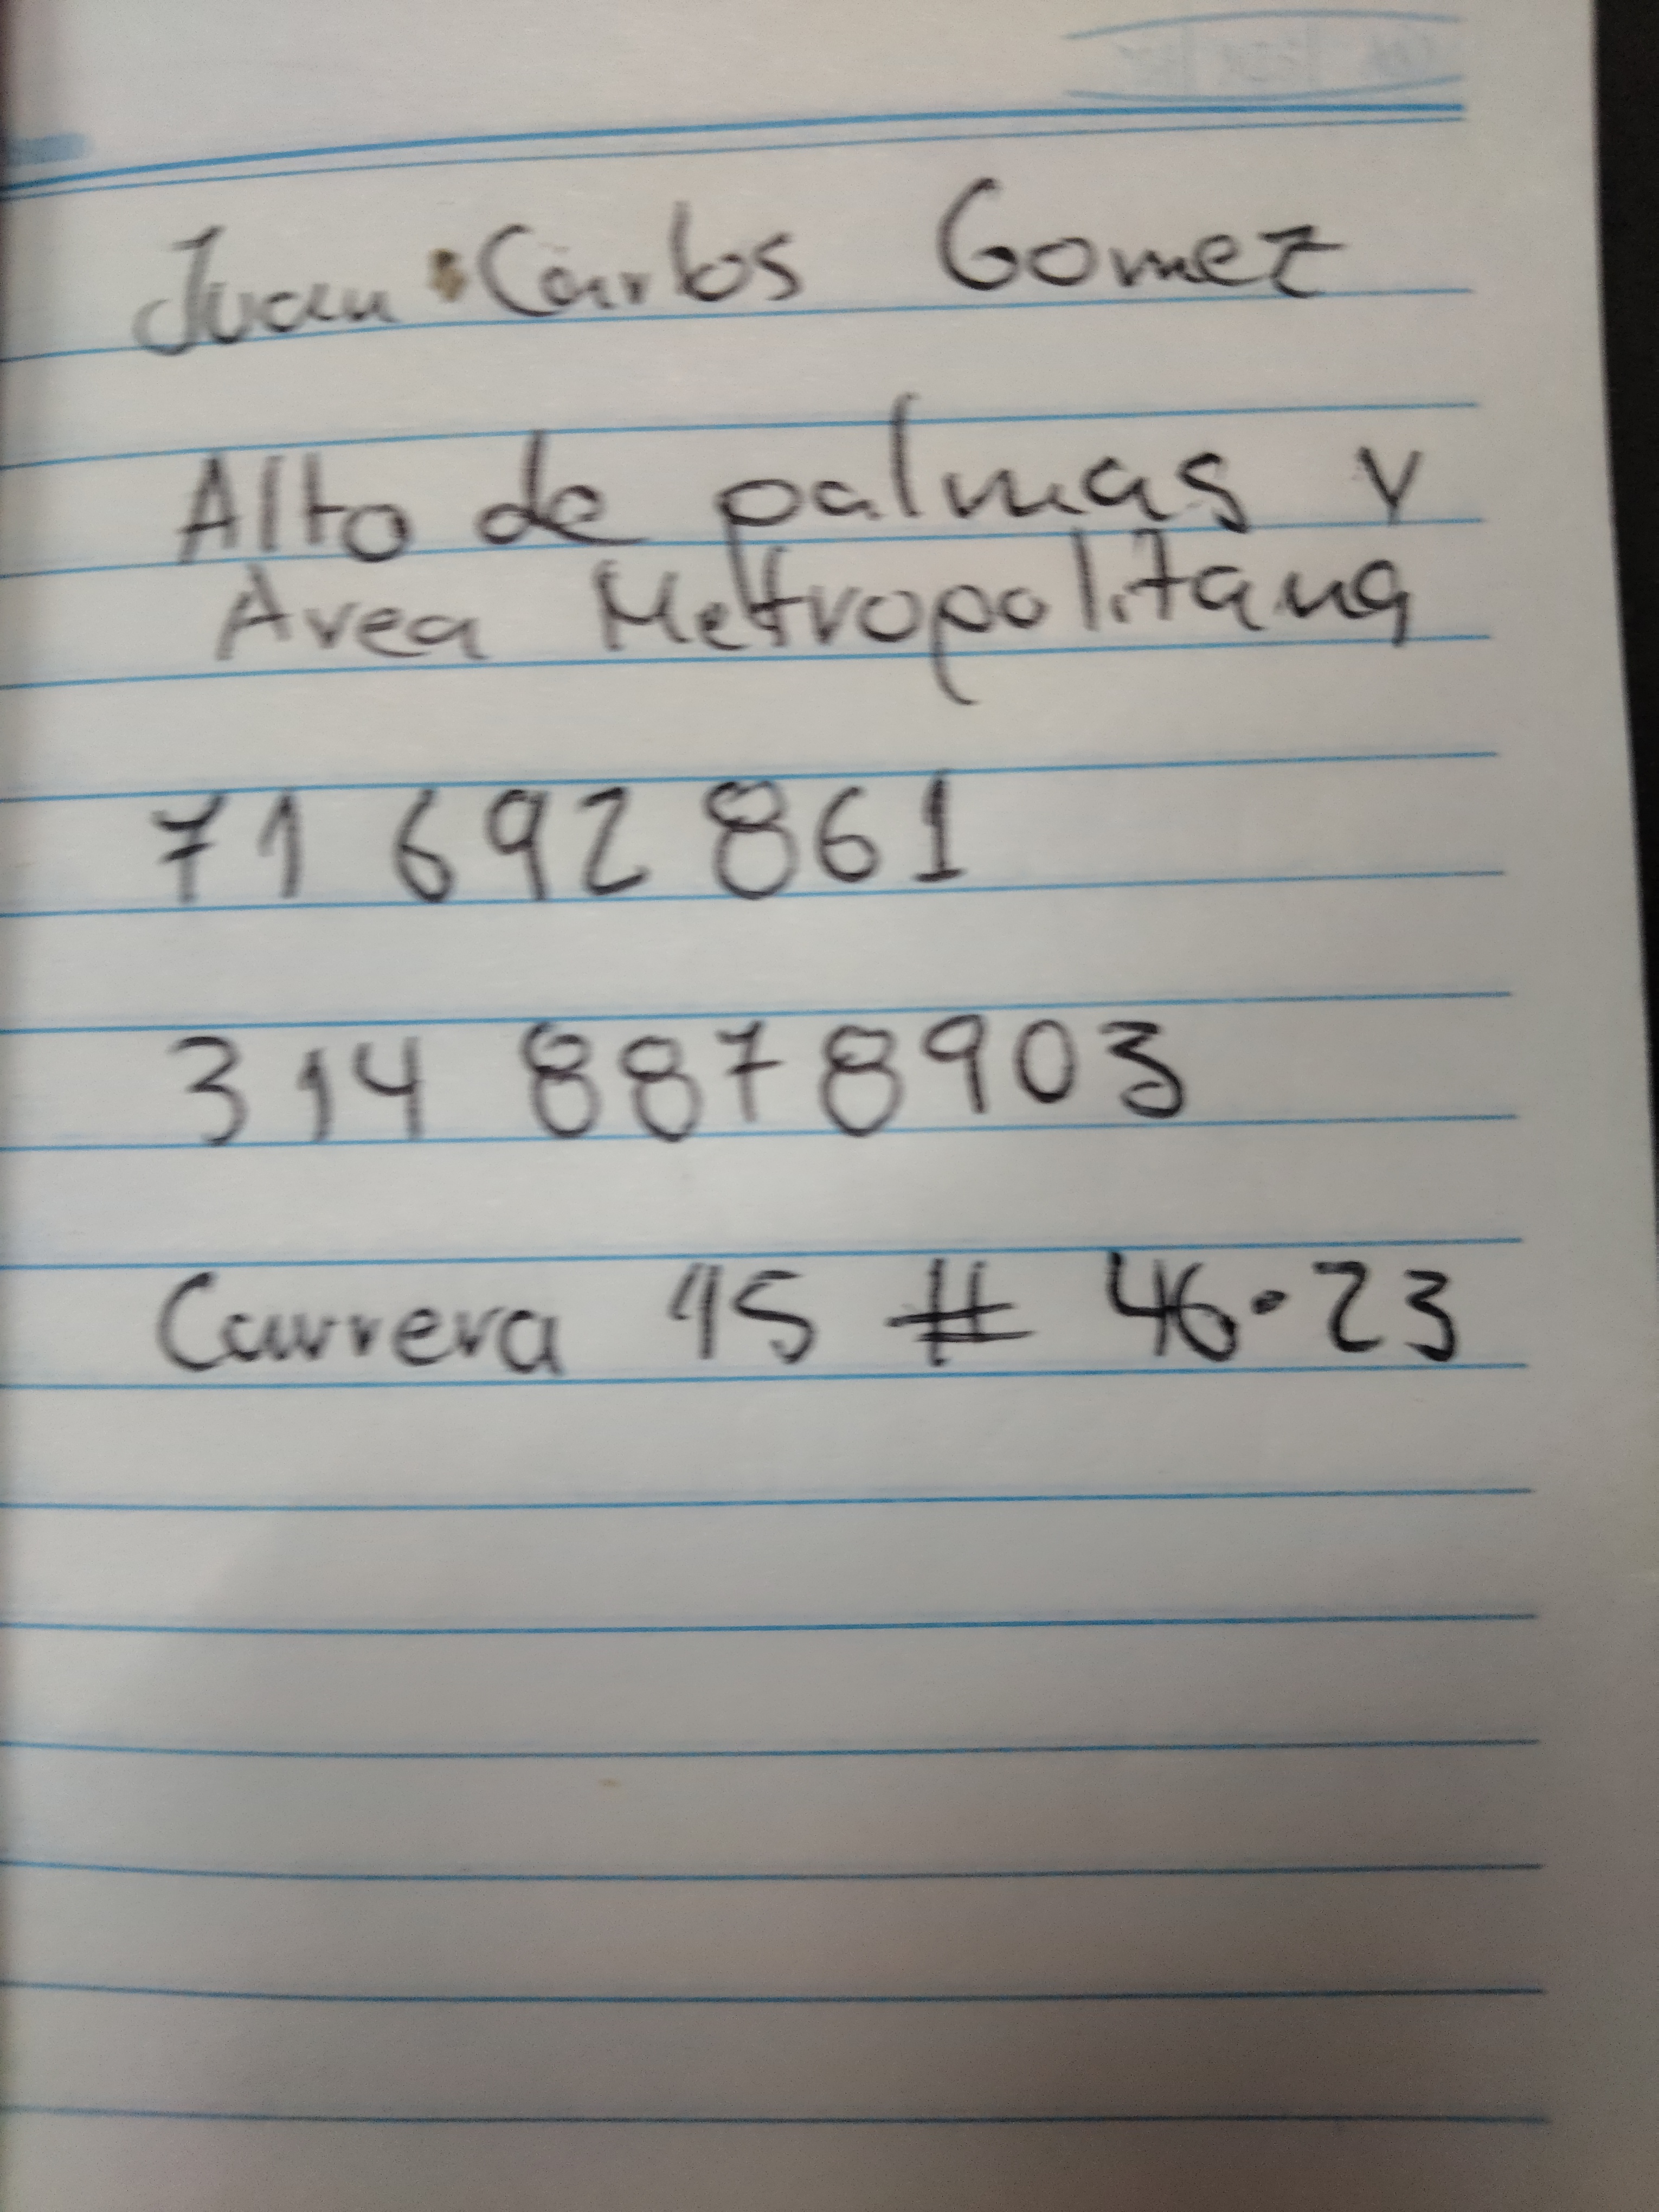 Juan Carlos Gomez
Alto de palmas y
Area Metropolitana
71 692 861
314 8878903
Carrera 15 # 46-23